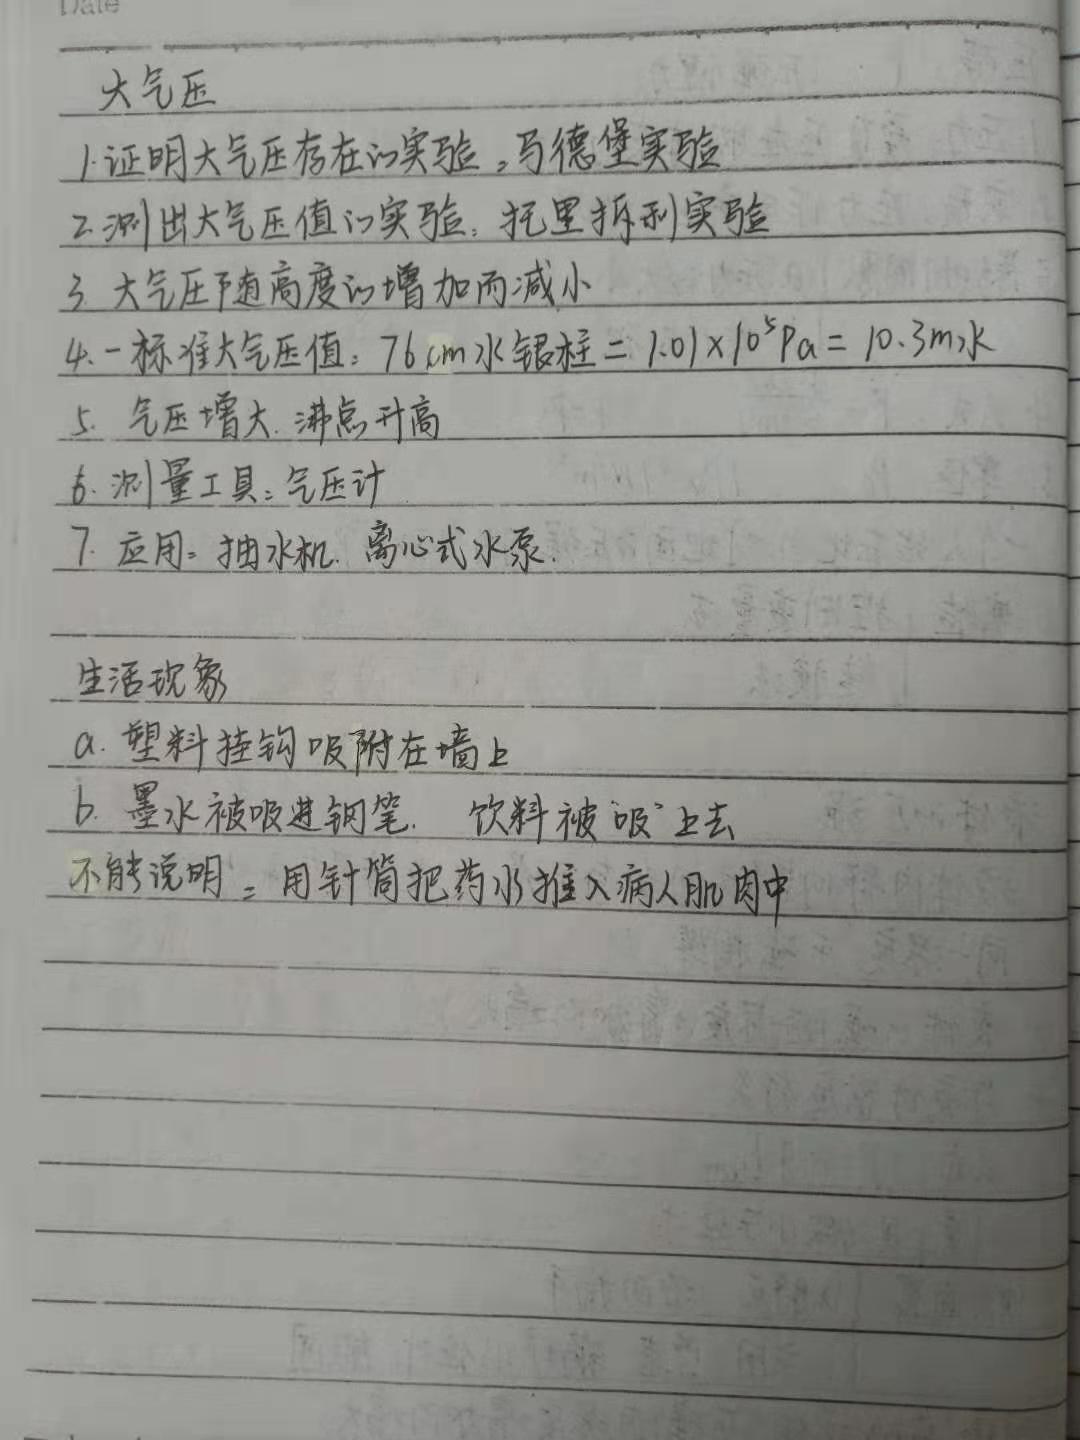 Date
大气压
1.证明大气压存在的实验:马德堡实验
2.测出大气压值的实验:托里拆利实验
3.大气压随高度的增加而减小
4.一标准大气压值:76cm水银柱=1.01×10⁵Pa=10.3m水
5.气压增大.沸点升高
6.测量工具:气压计
7.应用:抽水机.离心式水泵.
生活现象
a.塑料挂钩吸附在墙上
b.墨水被吸进钢笔. 饮料被"吸"上去
不能说明:用针筒把药水推入病人肌肉中